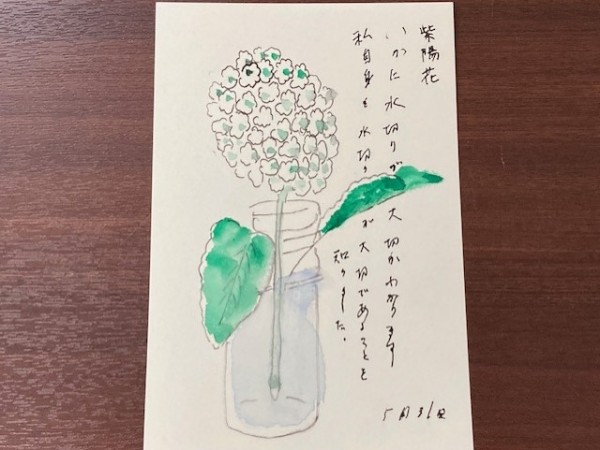 紫陽花
いかに水切りが大切かわかります
私自身も水切りが大切であることを
知りました。
5月31日